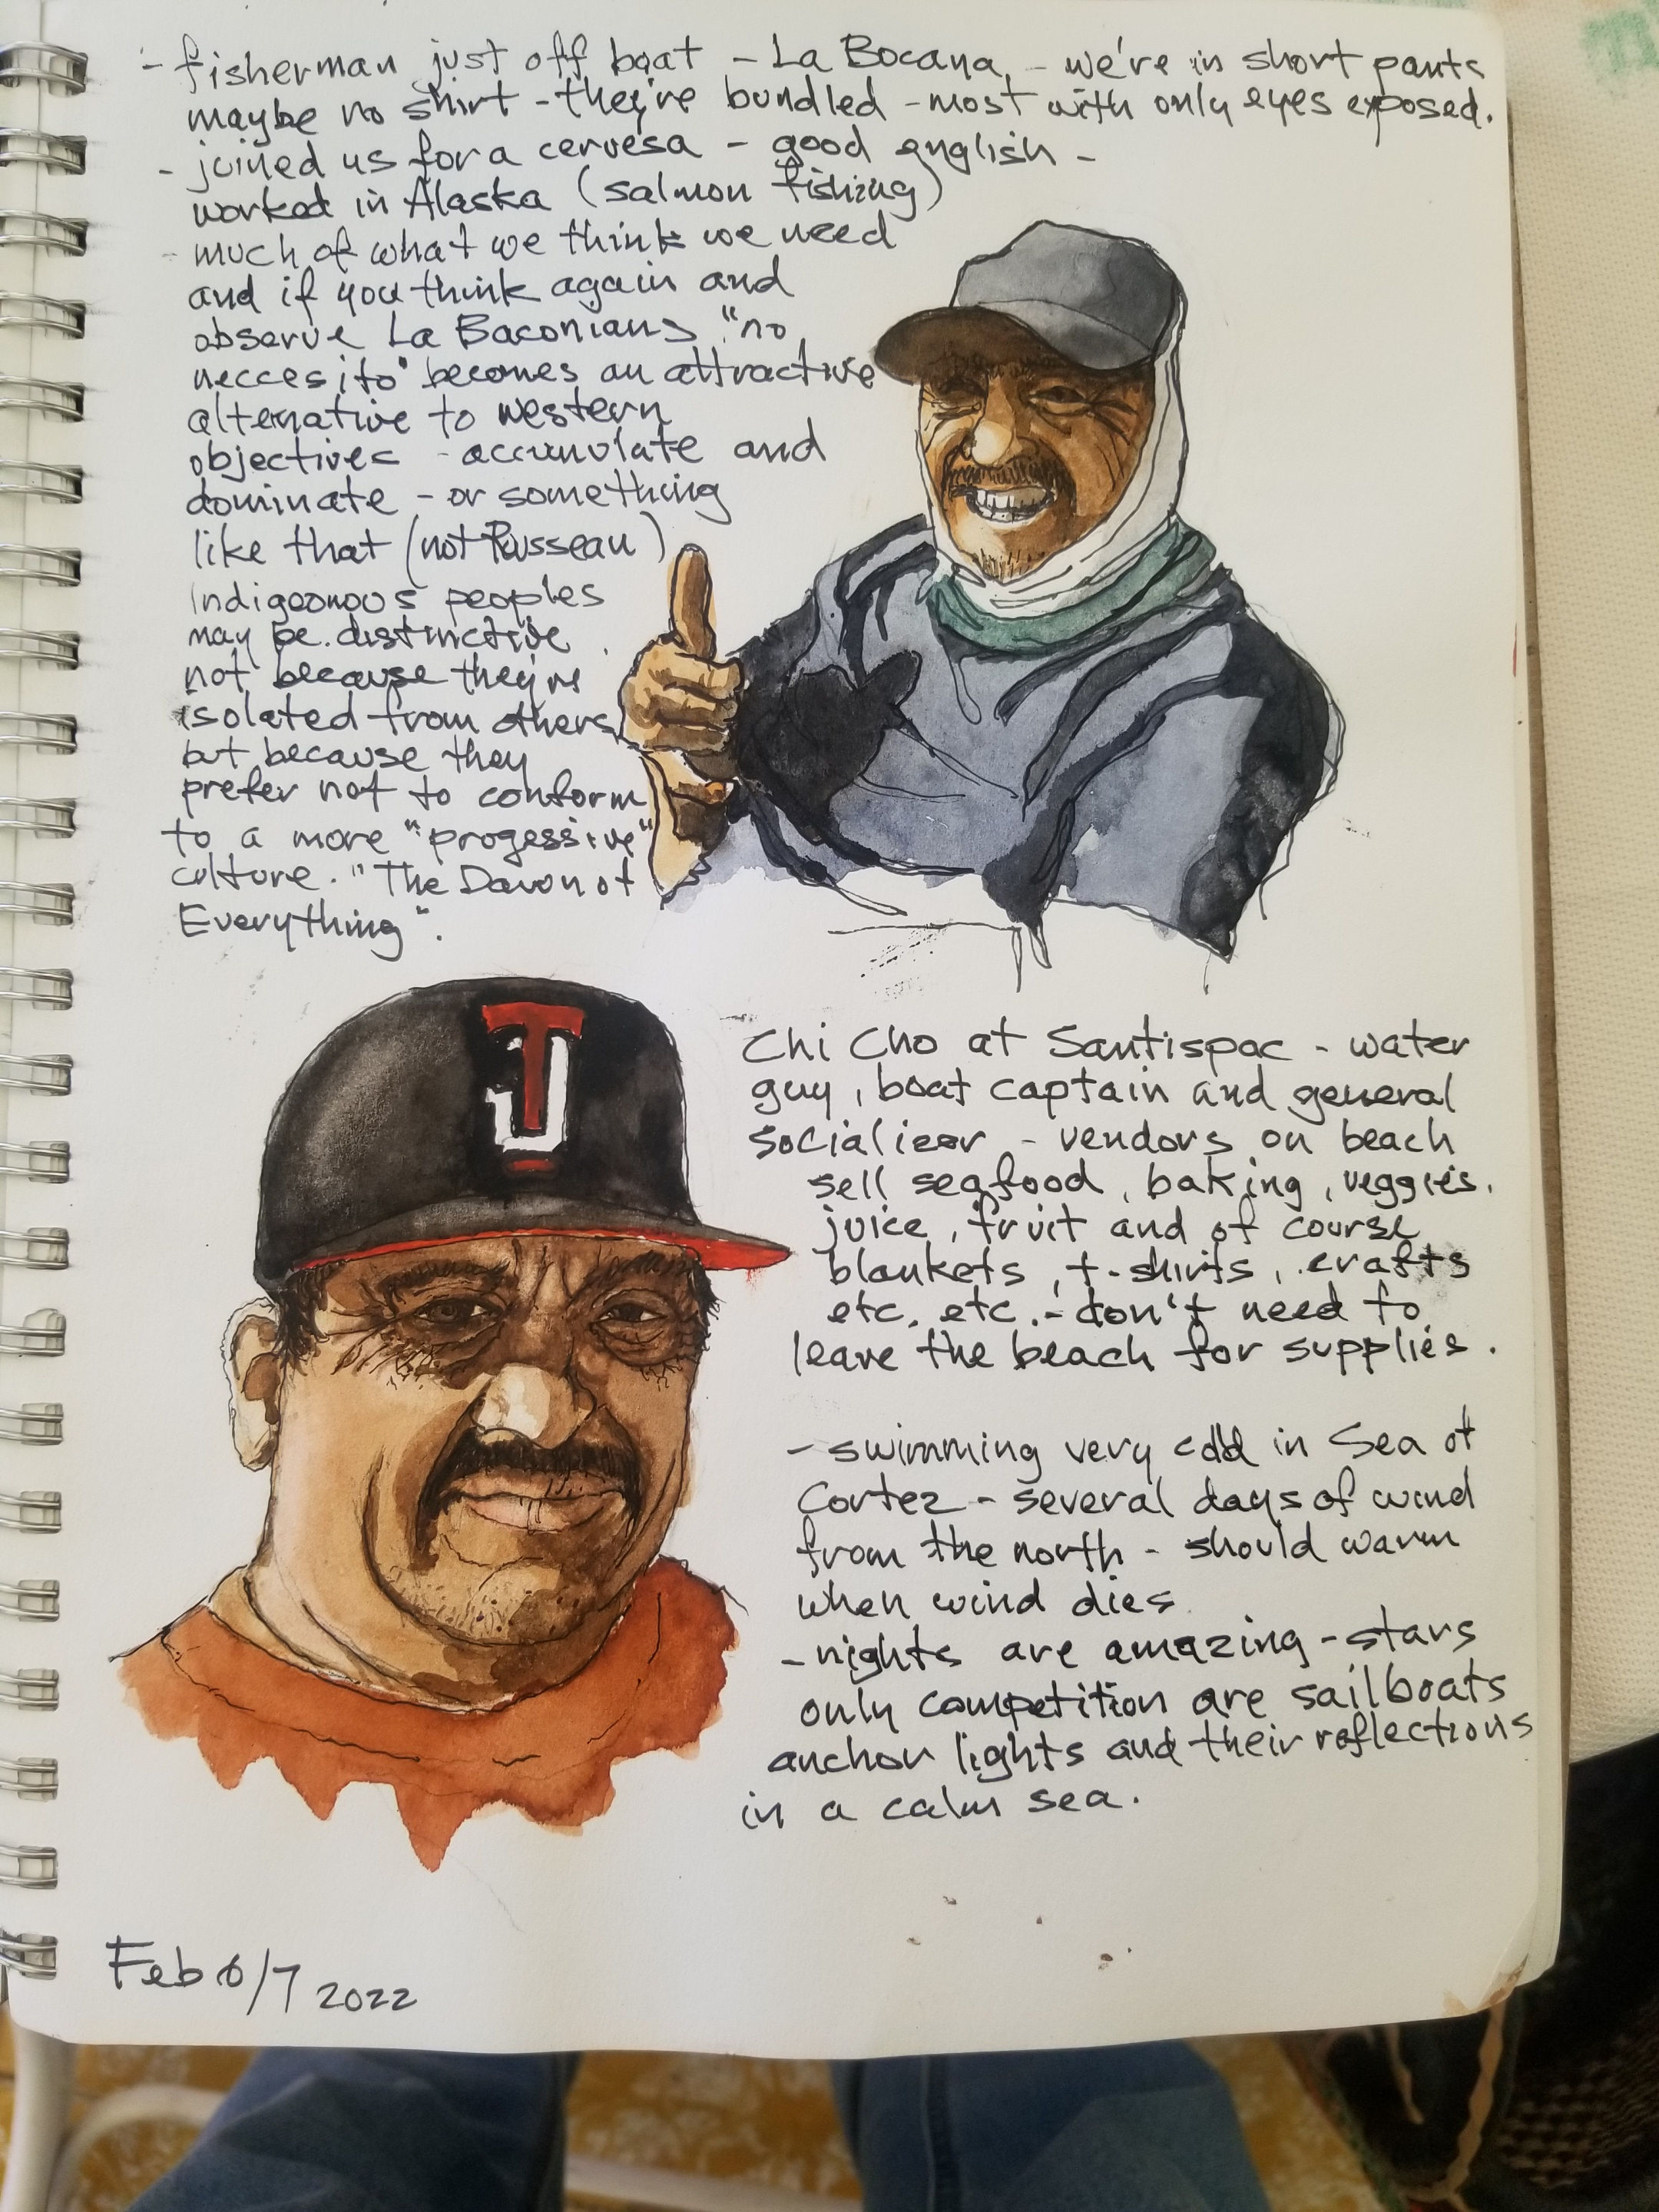 - fisherman just off boat - La Bocana, - we're in short pants
maybe no shirt - they're bundled - most with only eyes exposed.
- joined us for a cervesa - good english -
worked in Alaska (salmon fishing)
- much of what we think we need
and if you think again and
observe La Baconians "no
neccesito" becomes an attractive
alternative to western
objectives - accumulate and
dominate - or something
like that (not Rousseau)
Indigeonous peoples
may be distinctive
not because they're
isolated from others
but because they
prefer not to conform
to a more "progessive"
culture. "The Dawn of
Everything".
TJ
Chi Cho at Santispac - water
guy, boat captain and general
socializer - vendors on beach
sell seafood, baking, veggies,
juice, fruit and of course
blankets, t-shirts, crafts
etc. etc. - don't need to
leave the beach for supplies.
- swimming very cold in Sea of
Cortez - several days of wind
from the north - should warm
when wind dies
- nights are amazing - stars
only competition are sailboats
anchor lights and their reflections
in a calm sea.
Feb 6/7 2022